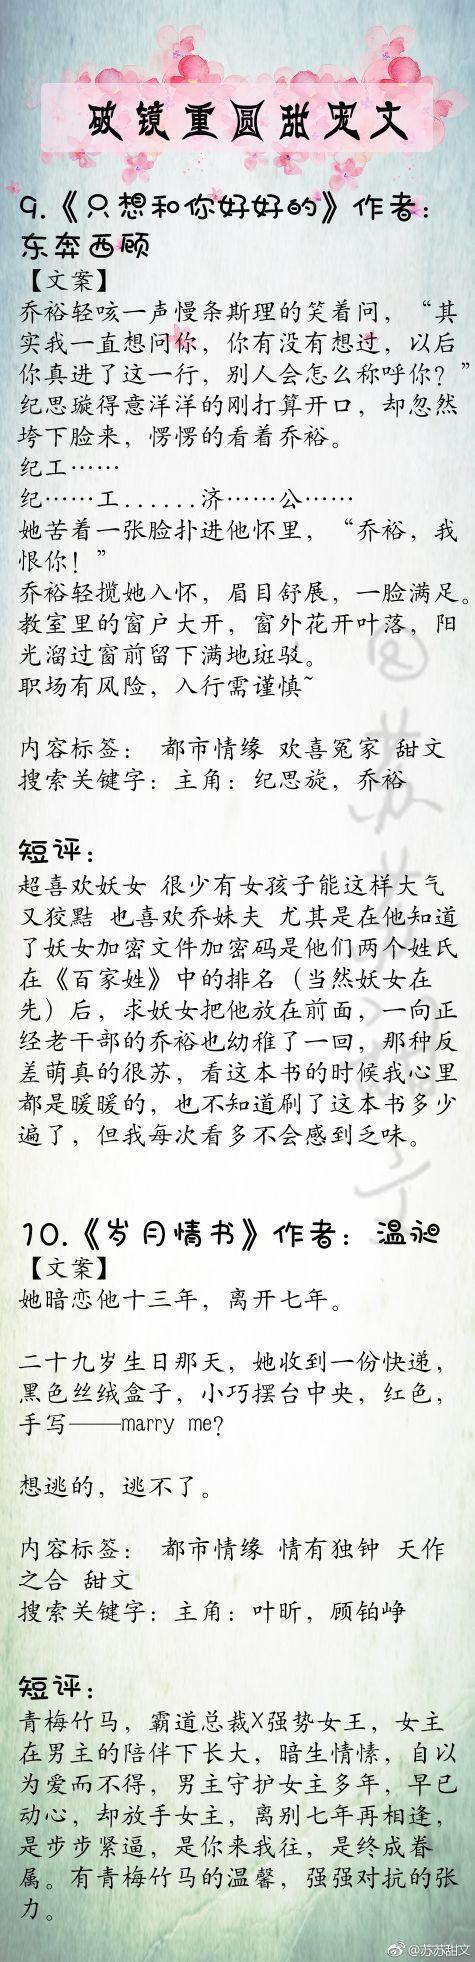 破镜重圆甜宠文
9.《只想和你好好的》作者：
东奔西顾
【文案】
乔裕轻咳一声慢条斯理的笑着问，“其
实我一直想问你，你有没有想过，以后
你真进了这一行，别人会怎么称呼你？”
纪思璇得意洋洋的刚打算开口，却忽然
垮下脸来，愣愣的看着乔裕。
纪工……
纪……工......济……公……
她苦着一张脸扑进他怀里，“乔裕，我
恨你！”
乔裕轻揽她入怀，眉目舒展，一脸满足。
教室里的窗户大开，窗外花开叶落，阳
光溜过窗前留下满地斑驳。
职场有风险，入行需谨慎~
内容标签： 都市情缘 欢喜冤家 甜文
搜索关键字：主角：纪思旋，乔裕
短评：
超喜欢妖女 很少有女孩子能这样大气
又狡黠 也喜欢乔妹夫 尤其是在他知道
了妖女加密文件加密码是他们两个姓氏
在《百家姓》中的排名（当然妖女在
先）后，求妖女把他放在前面，一向正
经老干部的乔裕也幼稚了一回，那种反
差萌真的很苏，看这本书的时候我心里
都是暖暖的，也不知道刷了这本书多少
遍了，但我每次看多不会感到乏味。
10.《岁月情书》作者：温昶
【文案】
她暗恋他十三年，离开七年。
二十九岁生日那天，她收到一份快递，
黑色丝绒盒子，小巧摆台中央，红色，
手写——marry me?
想逃的，逃不了。
内容标签： 都市情缘 情有独钟 天作
之合 甜文
搜索关键字：主角：叶昕，顾铂峥
短评：
青梅竹马，霸道总裁X强势女王，女主
在男主的陪伴下长大，暗生情愫，自以
为爱而不得，男主守护女主多年，早已
动心，却放手女主，离别七年再相逢，
是步步紧逼，是你来我往，是终成眷
属。有青梅竹马的温馨，强强对抗的张
力。
@苏苏甜文